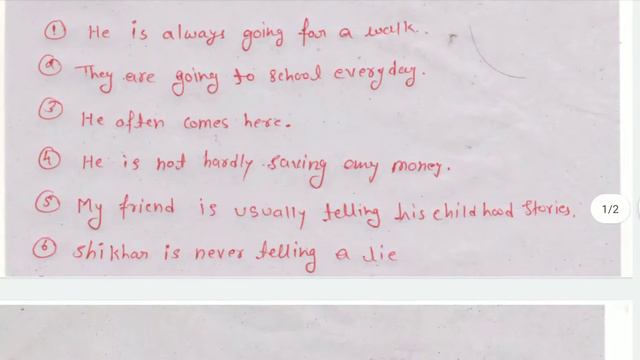 ① He is always going for a walk.
② They are going to school everyday.
③ He often comes here.
④ He is not hardly saving any money.
⑤ My friend is usually telling his childhood stories.
1/2
⑥ Shikhar is never telling a lie